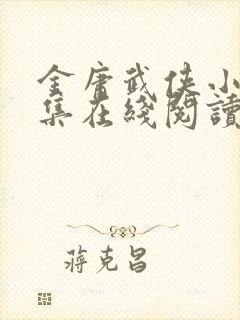 金庸武侠小
集在线阅读
蒋克昌